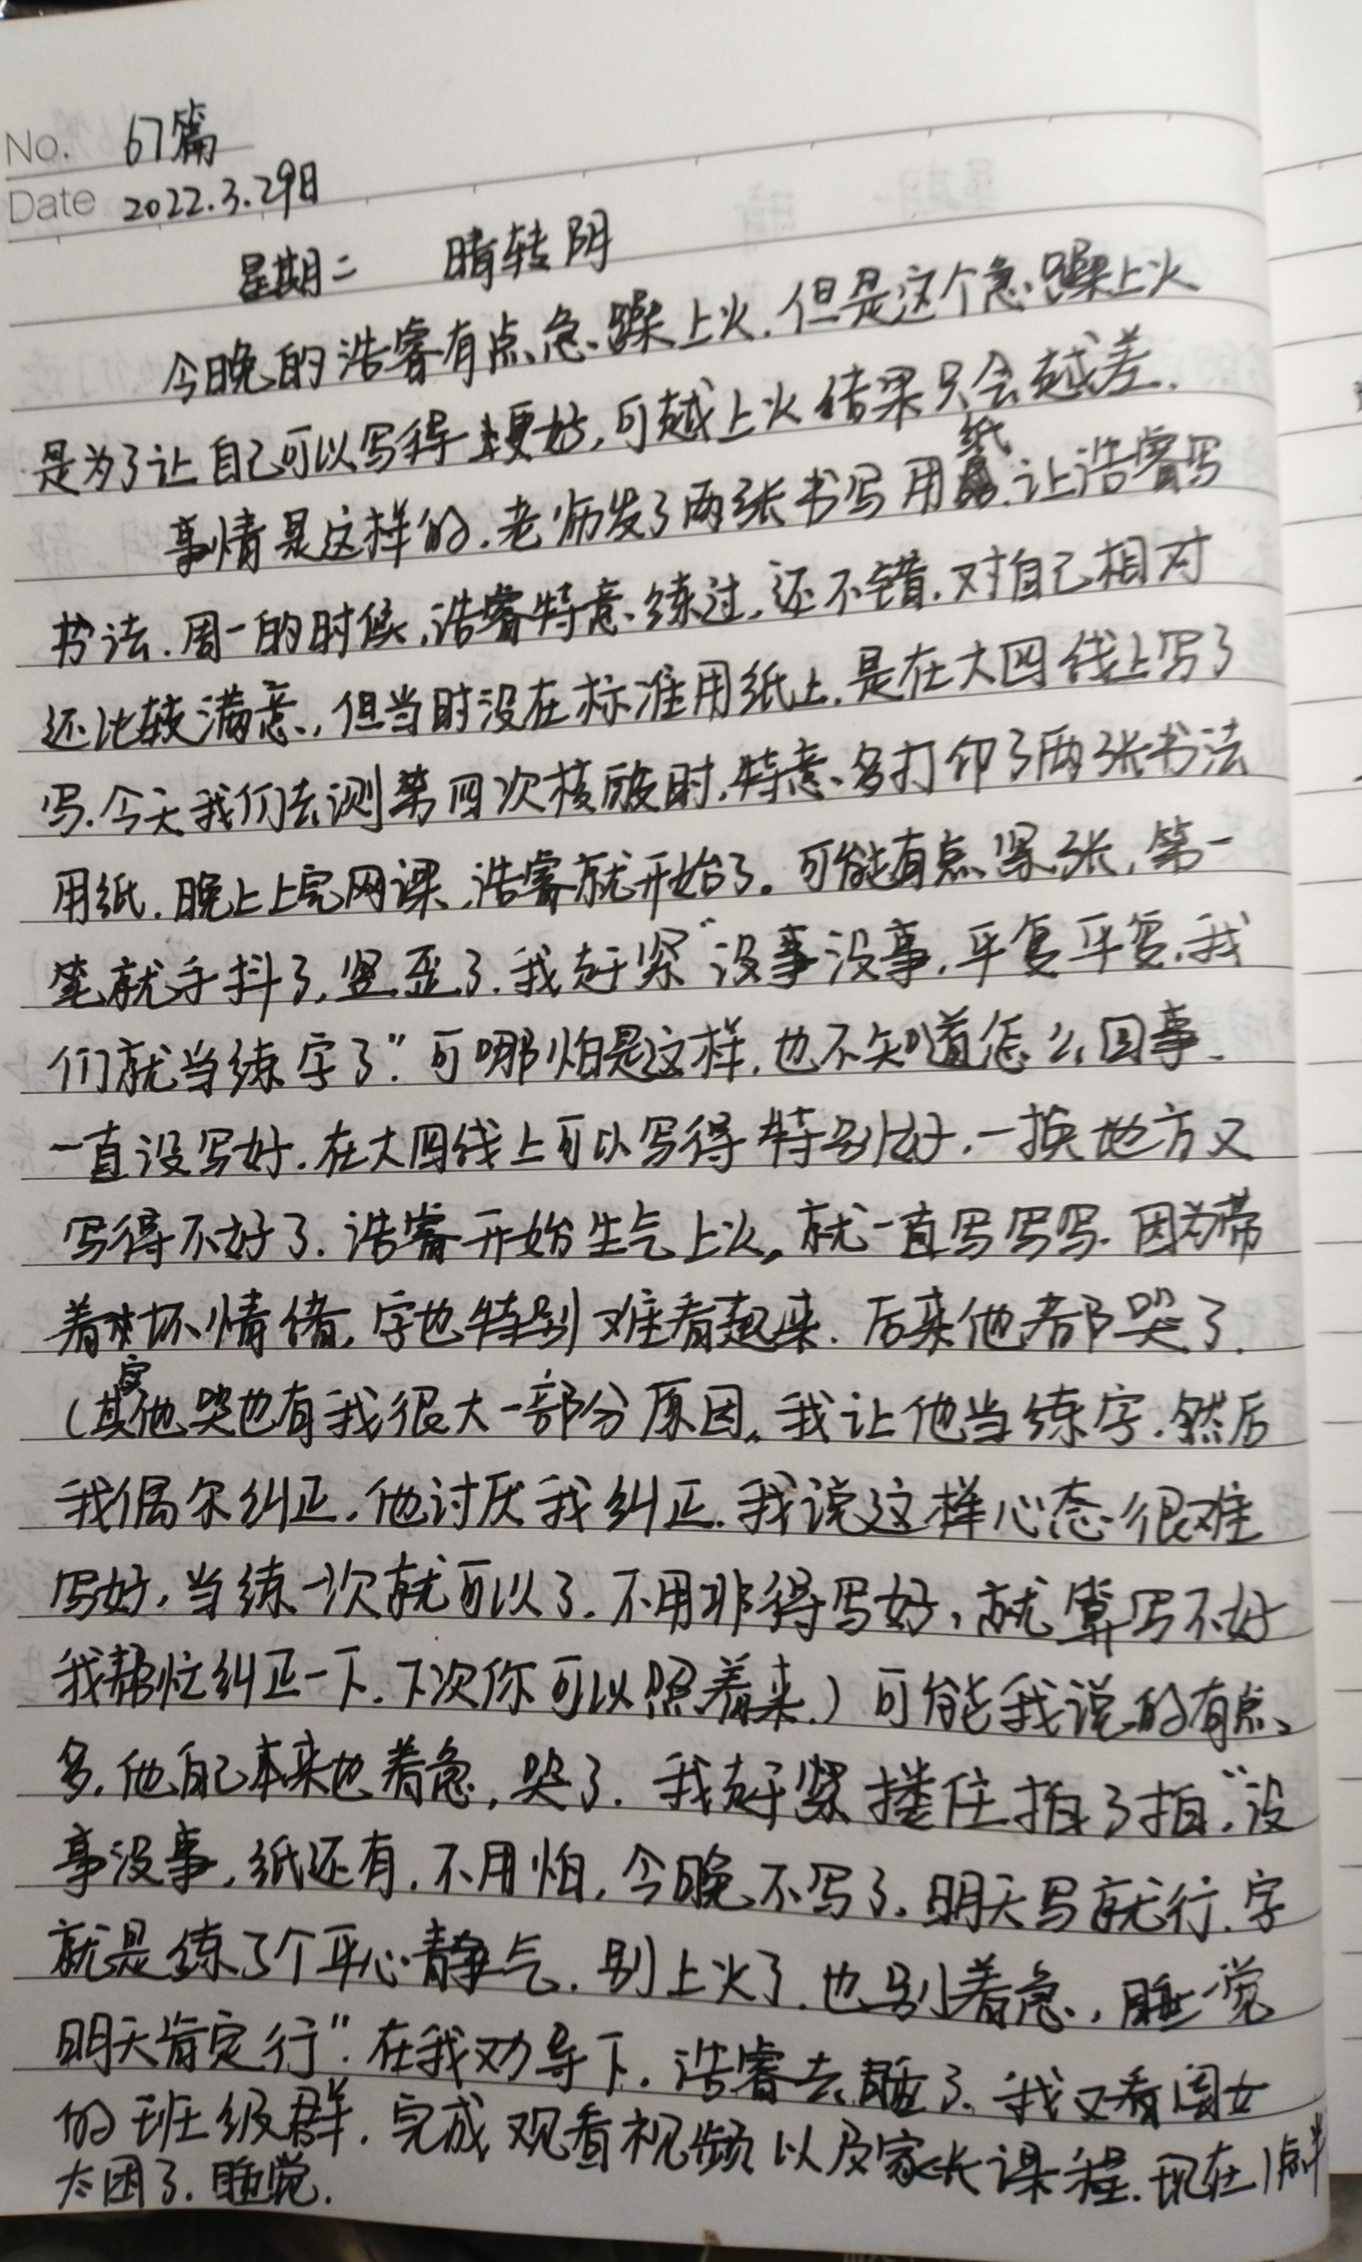 No. 67篇
Date 2022.3.29日
星期二 晴转阴
今晚的浩睿有点急躁上火.但是这个急躁上火
是为了让自己可以写得更好,可越上火结果只会越差.
事情是这样的.老师发了两张书写用纸.让浩睿写
书法.周一的时候,浩睿特意练过,还不错.对自己相对
还比较满意,但当时没在标准用纸上.是在大四线上写了
写.今天我们去测第四次核酸时,特意多打印了两张书法
用纸.晚上上完网课,浩睿就开始了。可能有点紧张,第一
笔就手抖了,竖歪了.我赶紧“没事没事,平复平复,我
们就当练字了”.可哪怕是这样,也不知道怎么回事.
一直没写好.在大四线上可以写得特别好.一换地方又
写得不好了.浩睿开始生气上火,就一直写写写.因为带
着坏情绪,字也特别难看起来.后来他都哭了.
(其实他哭也有我很大一部分原因.我让他当练字.然后
我偶尔纠正.他讨厌我纠正.我说这样心态很难
写好,当练一次就可以了.不用非得写好,就算写不好
我帮忙纠正一下.下次你可以照着来.)可能我说的有点
多,他自己本来也着急,哭了.我赶紧搂住拍了拍,“没
事没事,纸还有.不用怕,今晚不写了.明天写就行.字
就是练了个平心静气.别上火了.也别着急,睡一觉
明天肯定行”.在我劝导下.浩睿去睡了.我又看闺女
的班级群.完成观看视频以及家长课程.现在1点半
太困了.睡觉.